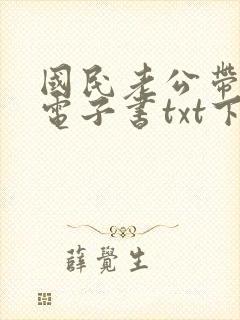 國民老公帶
電子書txt下
薛覺生